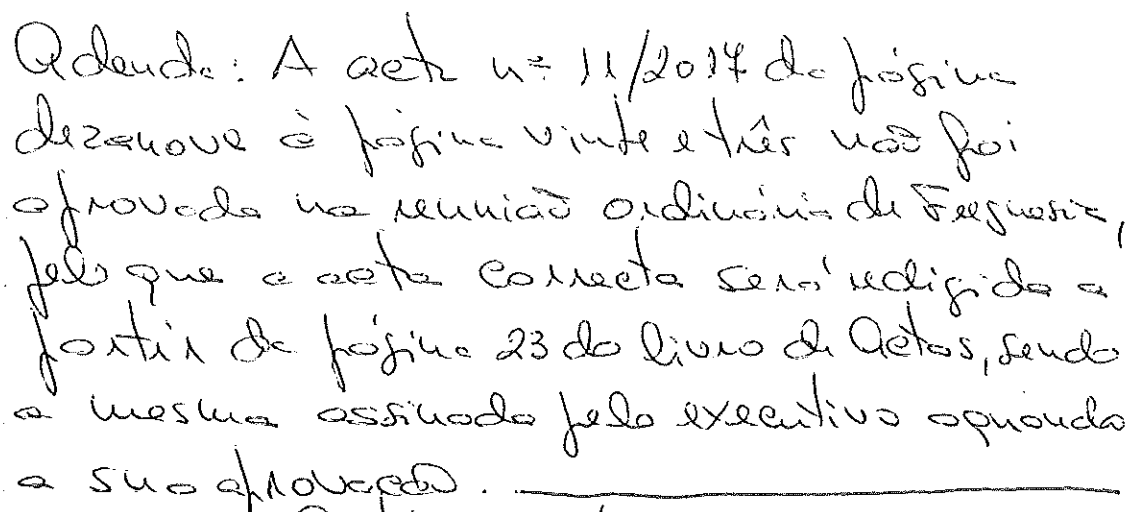 Adenda: A acta nº 11/2017 da página
dezanove à página vinte e três não foi
aprovada na reunião ordinária de Freguesia,
pelo que a acta correcta será redigida a
partir da página 23 do livro de Actas, sendo
a mesma assinada pelo executivo aquando
a sua aprovação.